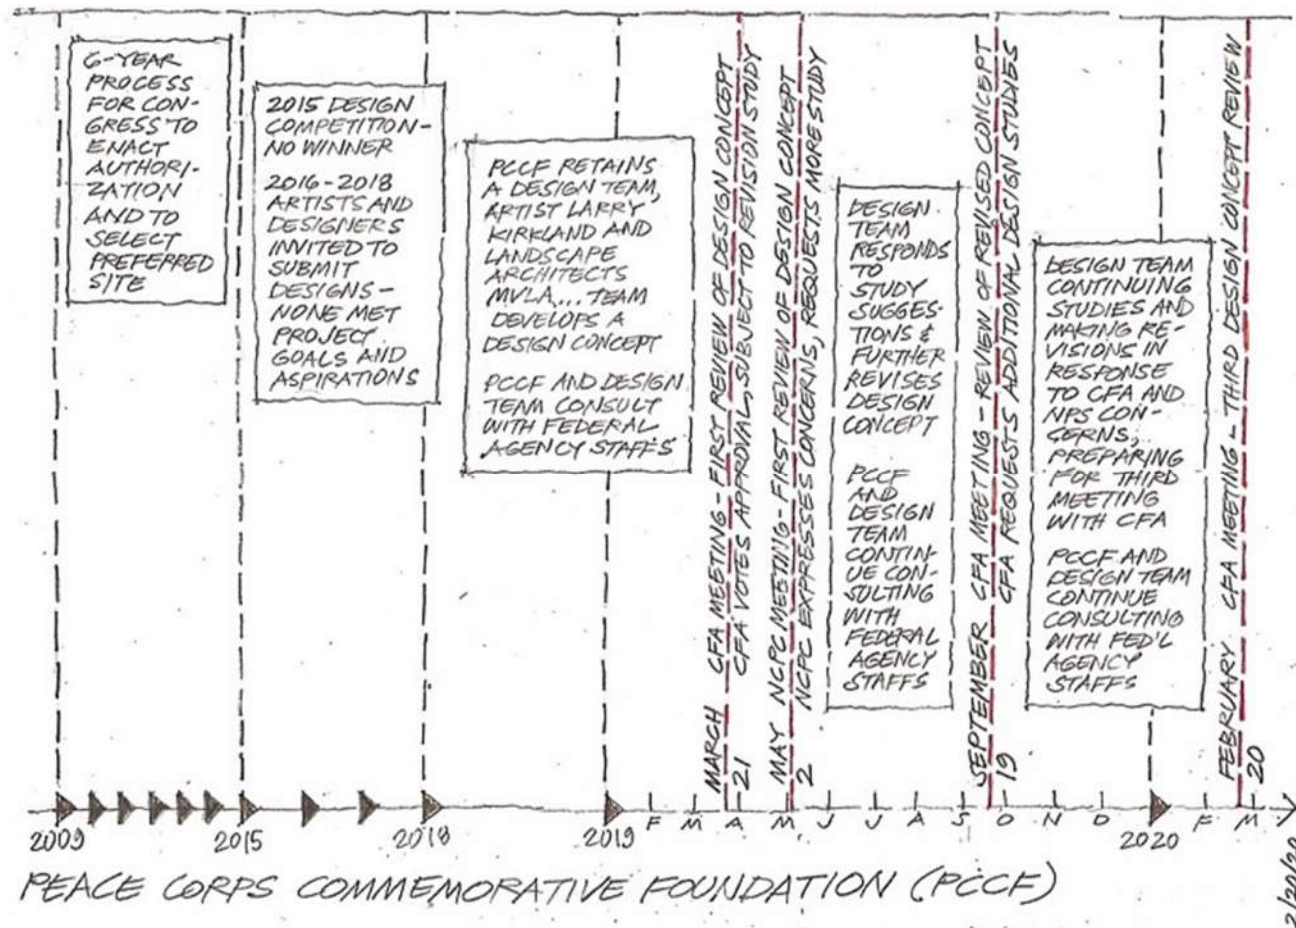 6-YEAR
PROCESS
FOR CON-
GRESS TO
ENACT
AUTHORI-
ZATION
AND TO
SELECT
PREFERRED
SITE
2015 DESIGN
COMPETITION-
NO WINNER
2016-2018
ARTISTS AND
DESIGNERS
INVITED TO
SUBMIT
DESIGNS-
NONE MET
PROJECT
GOALS AND
ASPIRATIONS
PCCF RETAINS
A DESIGN TEAM,
ARTIST LARRY
KIRKLAND AND
LANDSCAPE
ARCHITECTS
MVLA... TEAM
DEVELOPS A
DESIGN CONCEPT
PCCF AND DESIGN
TEAM CONSULT
WITH FEDERAL
AGENCY STAFFS
MARCH 21
CFA MEETING - FIRST REVIEW OF DESIGN CONCEPT
CFA VOTES APPROVAL, SUBJECT TO REVISION STUDY
MAY 2
NCPC MEETING - FIRST REVIEW OF DESIGN CONCEPT
NCPC EXPRESSES CONCERNS, REQUESTS MORE STUDY
DESIGN
TEAM
RESPONDS
TO
STUDY
SUGGES-
TIONS &
FURTHER
REVISES
DESIGN
CONCEPT
PCCF
AND
DESIGN
TEAM
CONTIN-
UE CON-
SULTING
WITH
FEDERAL
AGENCY
STAFFS
SEPTEMBER 19
CFA MEETING - REVIEW OF REVISED CONCEPT
CFA REQUESTS ADDITIONAL DESIGN STUDIES
DESIGN TEAM
CONTINUING
STUDIES AND
MAKING RE-
VISIONS IN
RESPONSE
TO CFA AND
NPS CON-
CERNS,
PREPARING
FOR THIRD
MEETING
WITH CFA
PCCF AND
DESIGN TEAM
CONTINUE
CONSULTING
WITH FED'L
AGENCY
STAFFS
FEBRUARY 20
CFA MEETING - THIRD DESIGN CONCEPT REVIEW
2009 2015 2018 2019 F M A M J J A S O N D 2020 F M
PEACE CORPS COMMEMORATIVE FOUNDATION (PCCF)
2/20/20